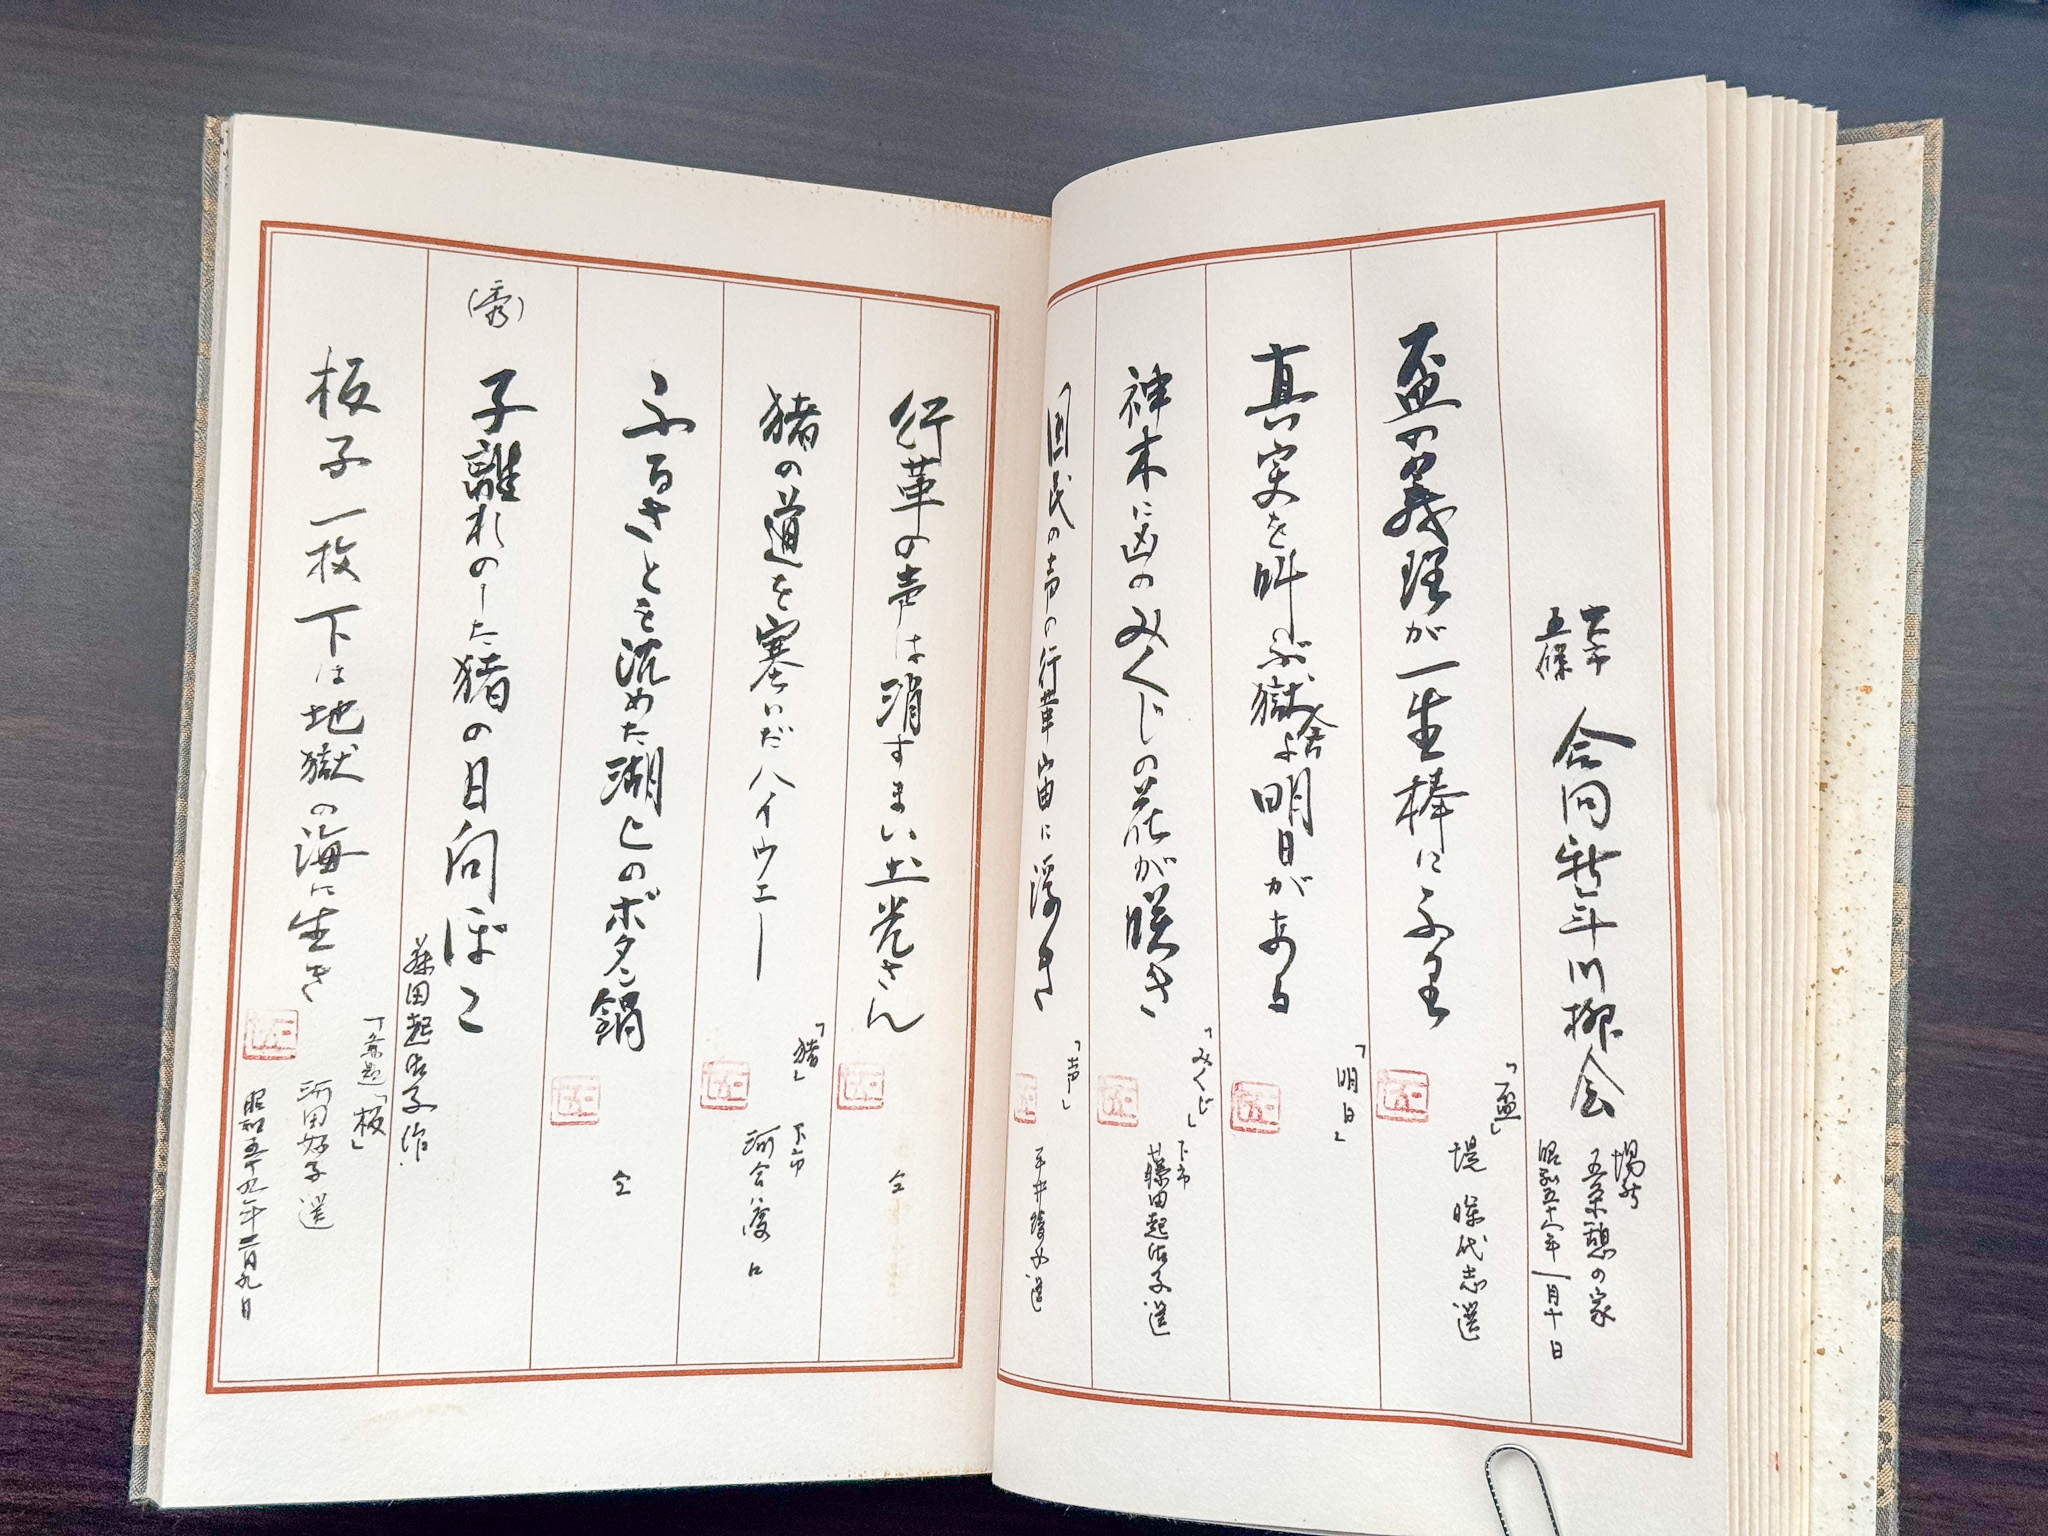 下市
五條
合同新年川柳会
場所
五条憩の家
昭和五十八年一月十日
盃の義理が一生棒にふり
「盃」
堤
代志選
真実を叫ぶ獄舎よ明日がある
「明日」
神木に凶のみくじの花が咲き
「みくじ」
下市
藤田起佐子選
国民の声の行革宙に浮き
「声」
平井
選
行革の声は消すまい土光さん
仝
猪の道を塞いだハイウエー
「猪」
下市
河合
ふるさとを沈めた湖畔のボタン鍋
仝
(秀)
子離れのした猪の日向ぼこ
藤田起佐子
板子一枚下は地獄の海に生き
「兼題「板」
河田好子選
昭和五十九年二月九日